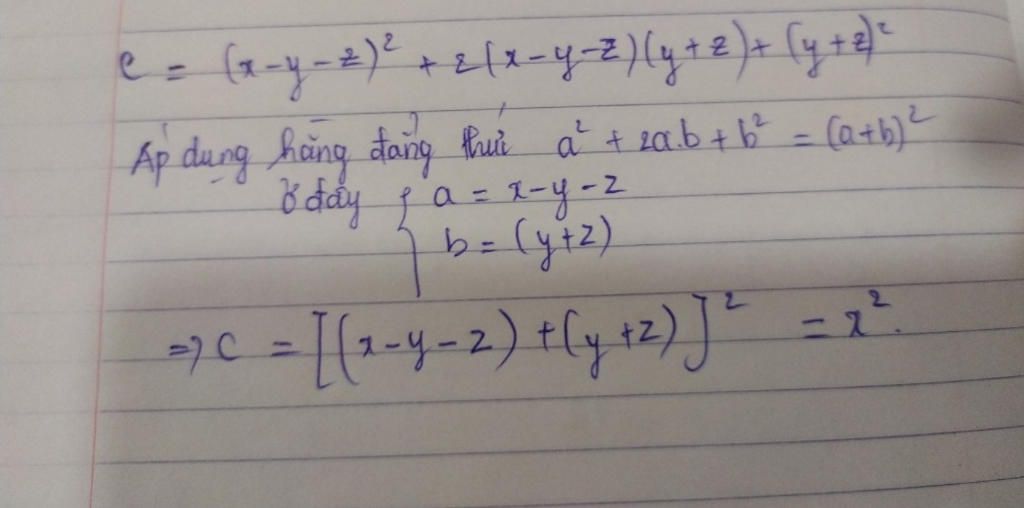 C = (x-y-z)² + 2(x-y-z)(y+z)+(y+z)²
Áp dụng hằng đẳng thức a² + 2a.b + b² = (a+b)²
Ở đây { a = x-y-z
b = (y+z)
=> C = [(x-y-z)+(y+z)]² = x².